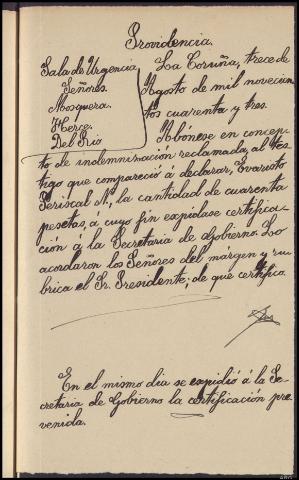 Providencia.
Sala de Urgencia
Señores.
Mosquera.
Herce.
Del Rio
La Coruña, trece de
Agosto de mil novecien
tos cuarenta y tres.
Abónese en concep-
to de indemnización reclamada, al tes-
tigo que compareció á declarar, Evaristo
Periscal N., la cantidad de cuarenta
pesetas, á cuyo fin expídase certifica-
ción á la Secretaria de Gobierno. Lo
acordaron los Señores del márgen y ru-
brica el Sr. Presidente; de que certifico.
En el mismo dia se expidió á la Se-
cretaria de Gobierno la certificación pre
venida.